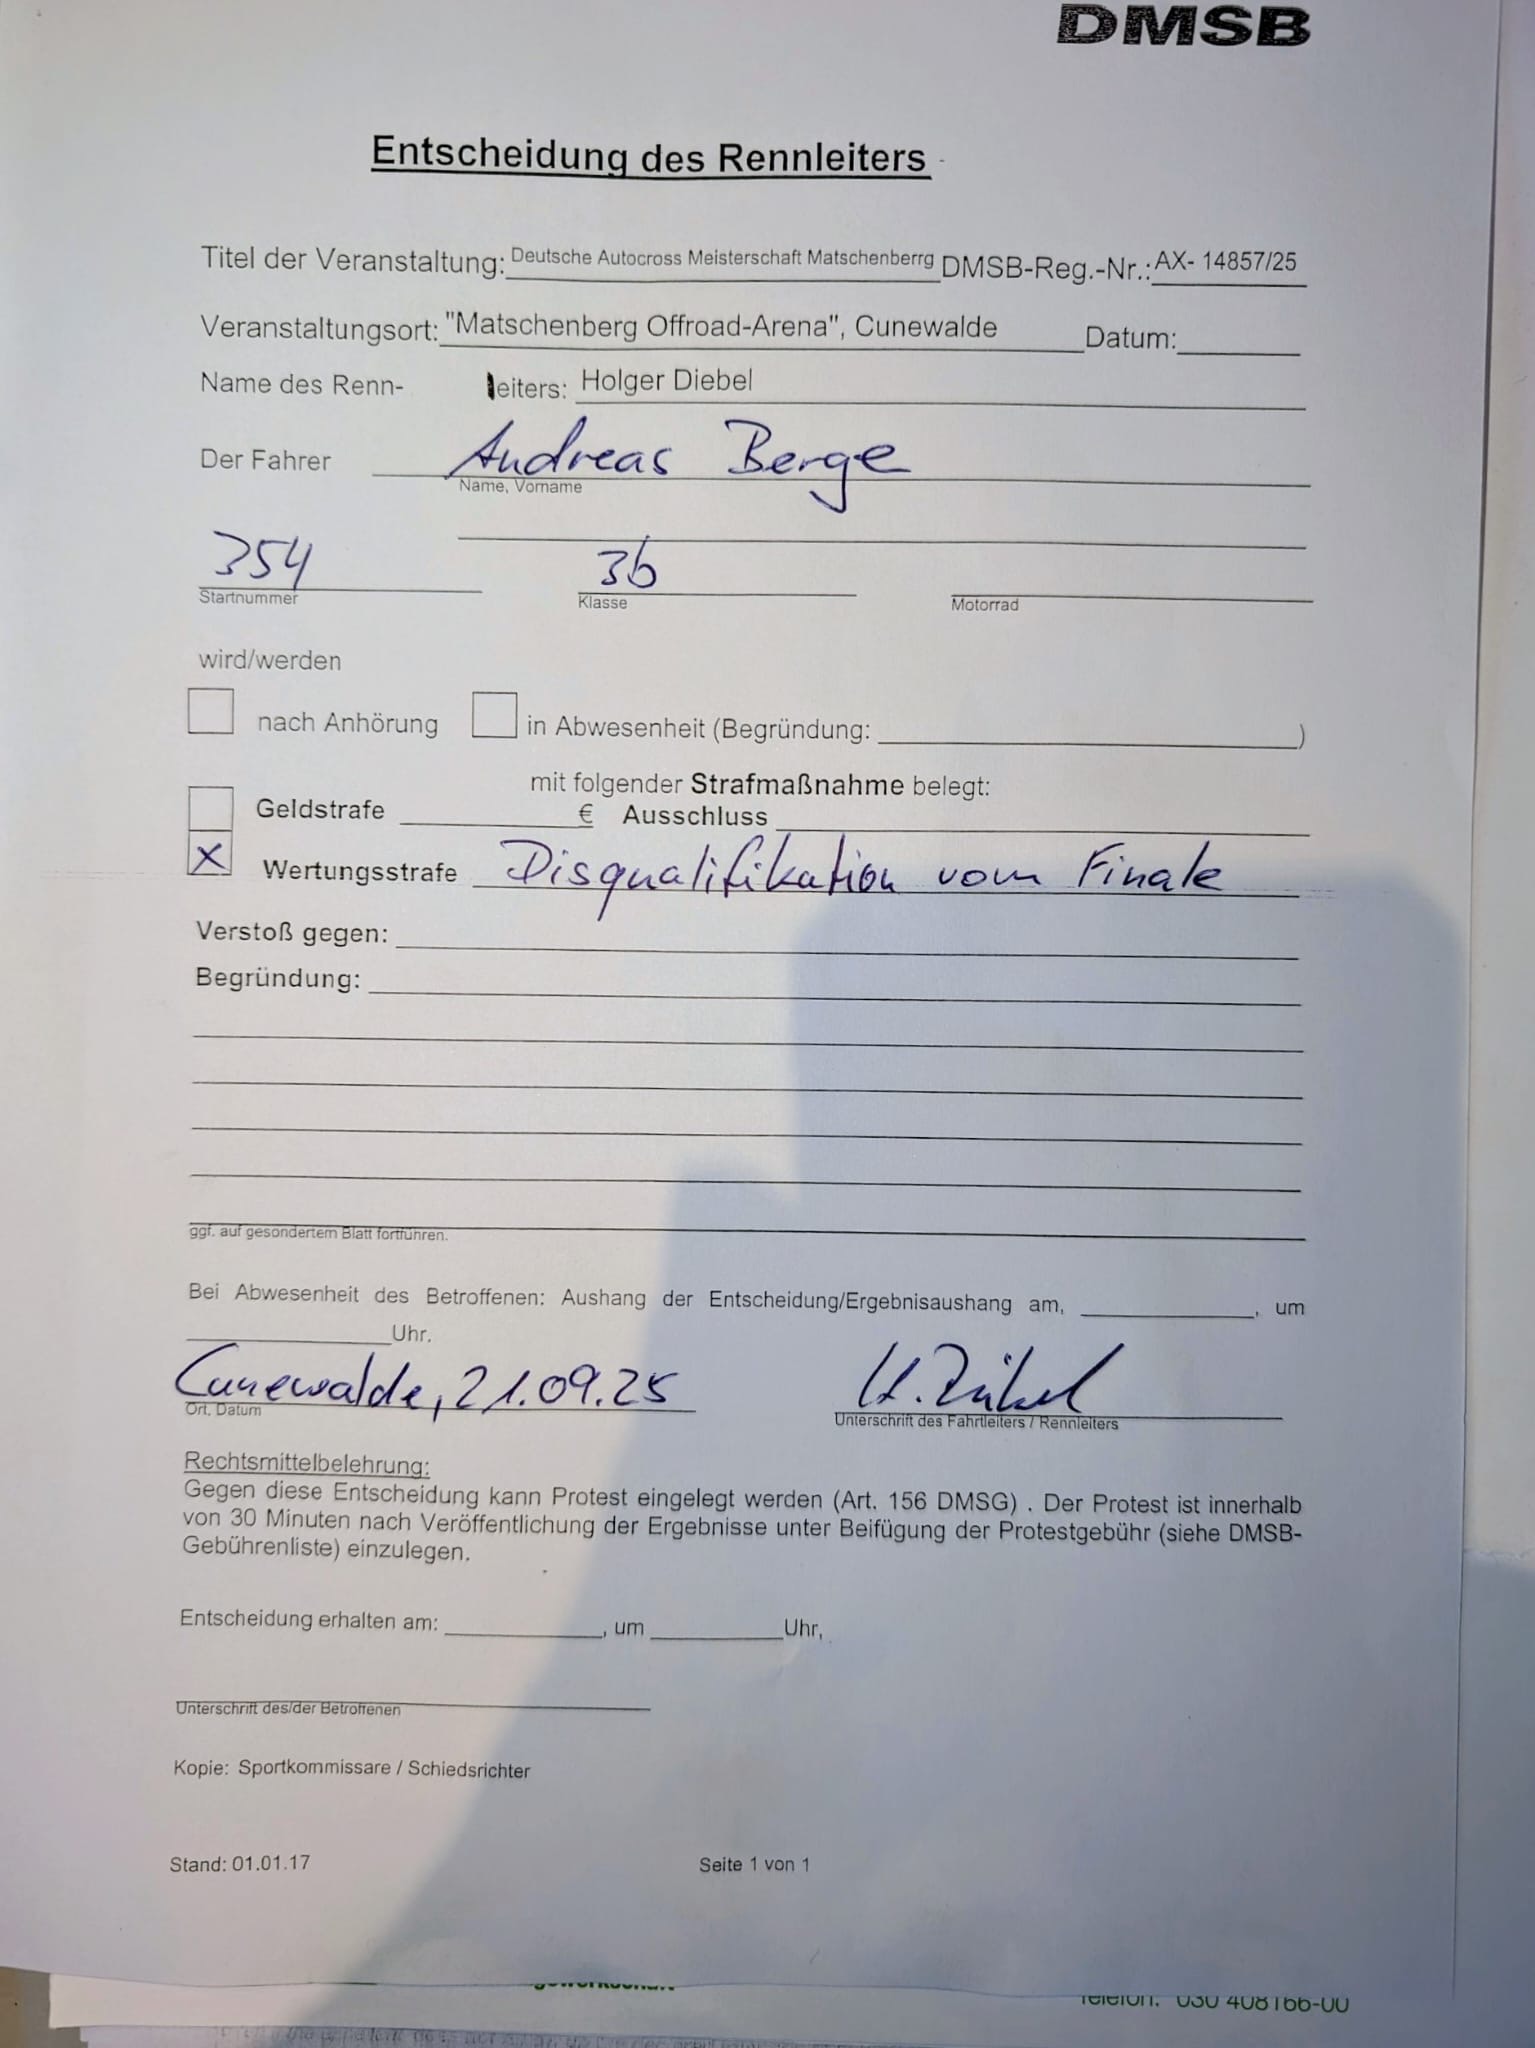 DMSB
Entscheidung des Rennleiters
Titel der Veranstaltung: Deutsche Autocross Meisterschaft Matschenberrg DMSB-Reg.-Nr.: AX- 14857/25
Veranstaltungsort: "Matschenberg Offroad-Arena", Cunewalde Datum:
Name des Renn- leiters: Holger Diebel
Der Fahrer Andreas Berge
Name, Vorname
354 3b
Startnummer Klasse Motorrad
wird/werden
nach Anhörung in Abwesenheit (Begründung: )
mit folgender Strafmaßnahme belegt:
Geldstrafe € Ausschluss
X Wertungsstrafe Disqualifikation vom Finale
Verstoß gegen:
Begründung:
ggf. auf gesondertem Blatt fortführen.
Bei Abwesenheit des Betroffenen: Aushang der Entscheidung/Ergebnisaushang am, , um
Uhr.
Cunewalde, 21.09.25 H. Diebel
Ort, Datum Unterschrift des Fahrtleiters / Rennleiters
Rechtsmittelbelehrung:
Gegen diese Entscheidung kann Protest eingelegt werden (Art. 156 DMSG) . Der Protest ist innerhalb
von 30 Minuten nach Veröffentlichung der Ergebnisse unter Beifügung der Protestgebühr (siehe DMSB-
Gebührenliste) einzulegen.
Entscheidung erhalten am: , um Uhr,
Unterschrift des/der Betroffenen
Kopie: Sportkommissare / Schiedsrichter
Stand: 01.01.17 Seite 1 von 1
Telefon: 030 408166-00